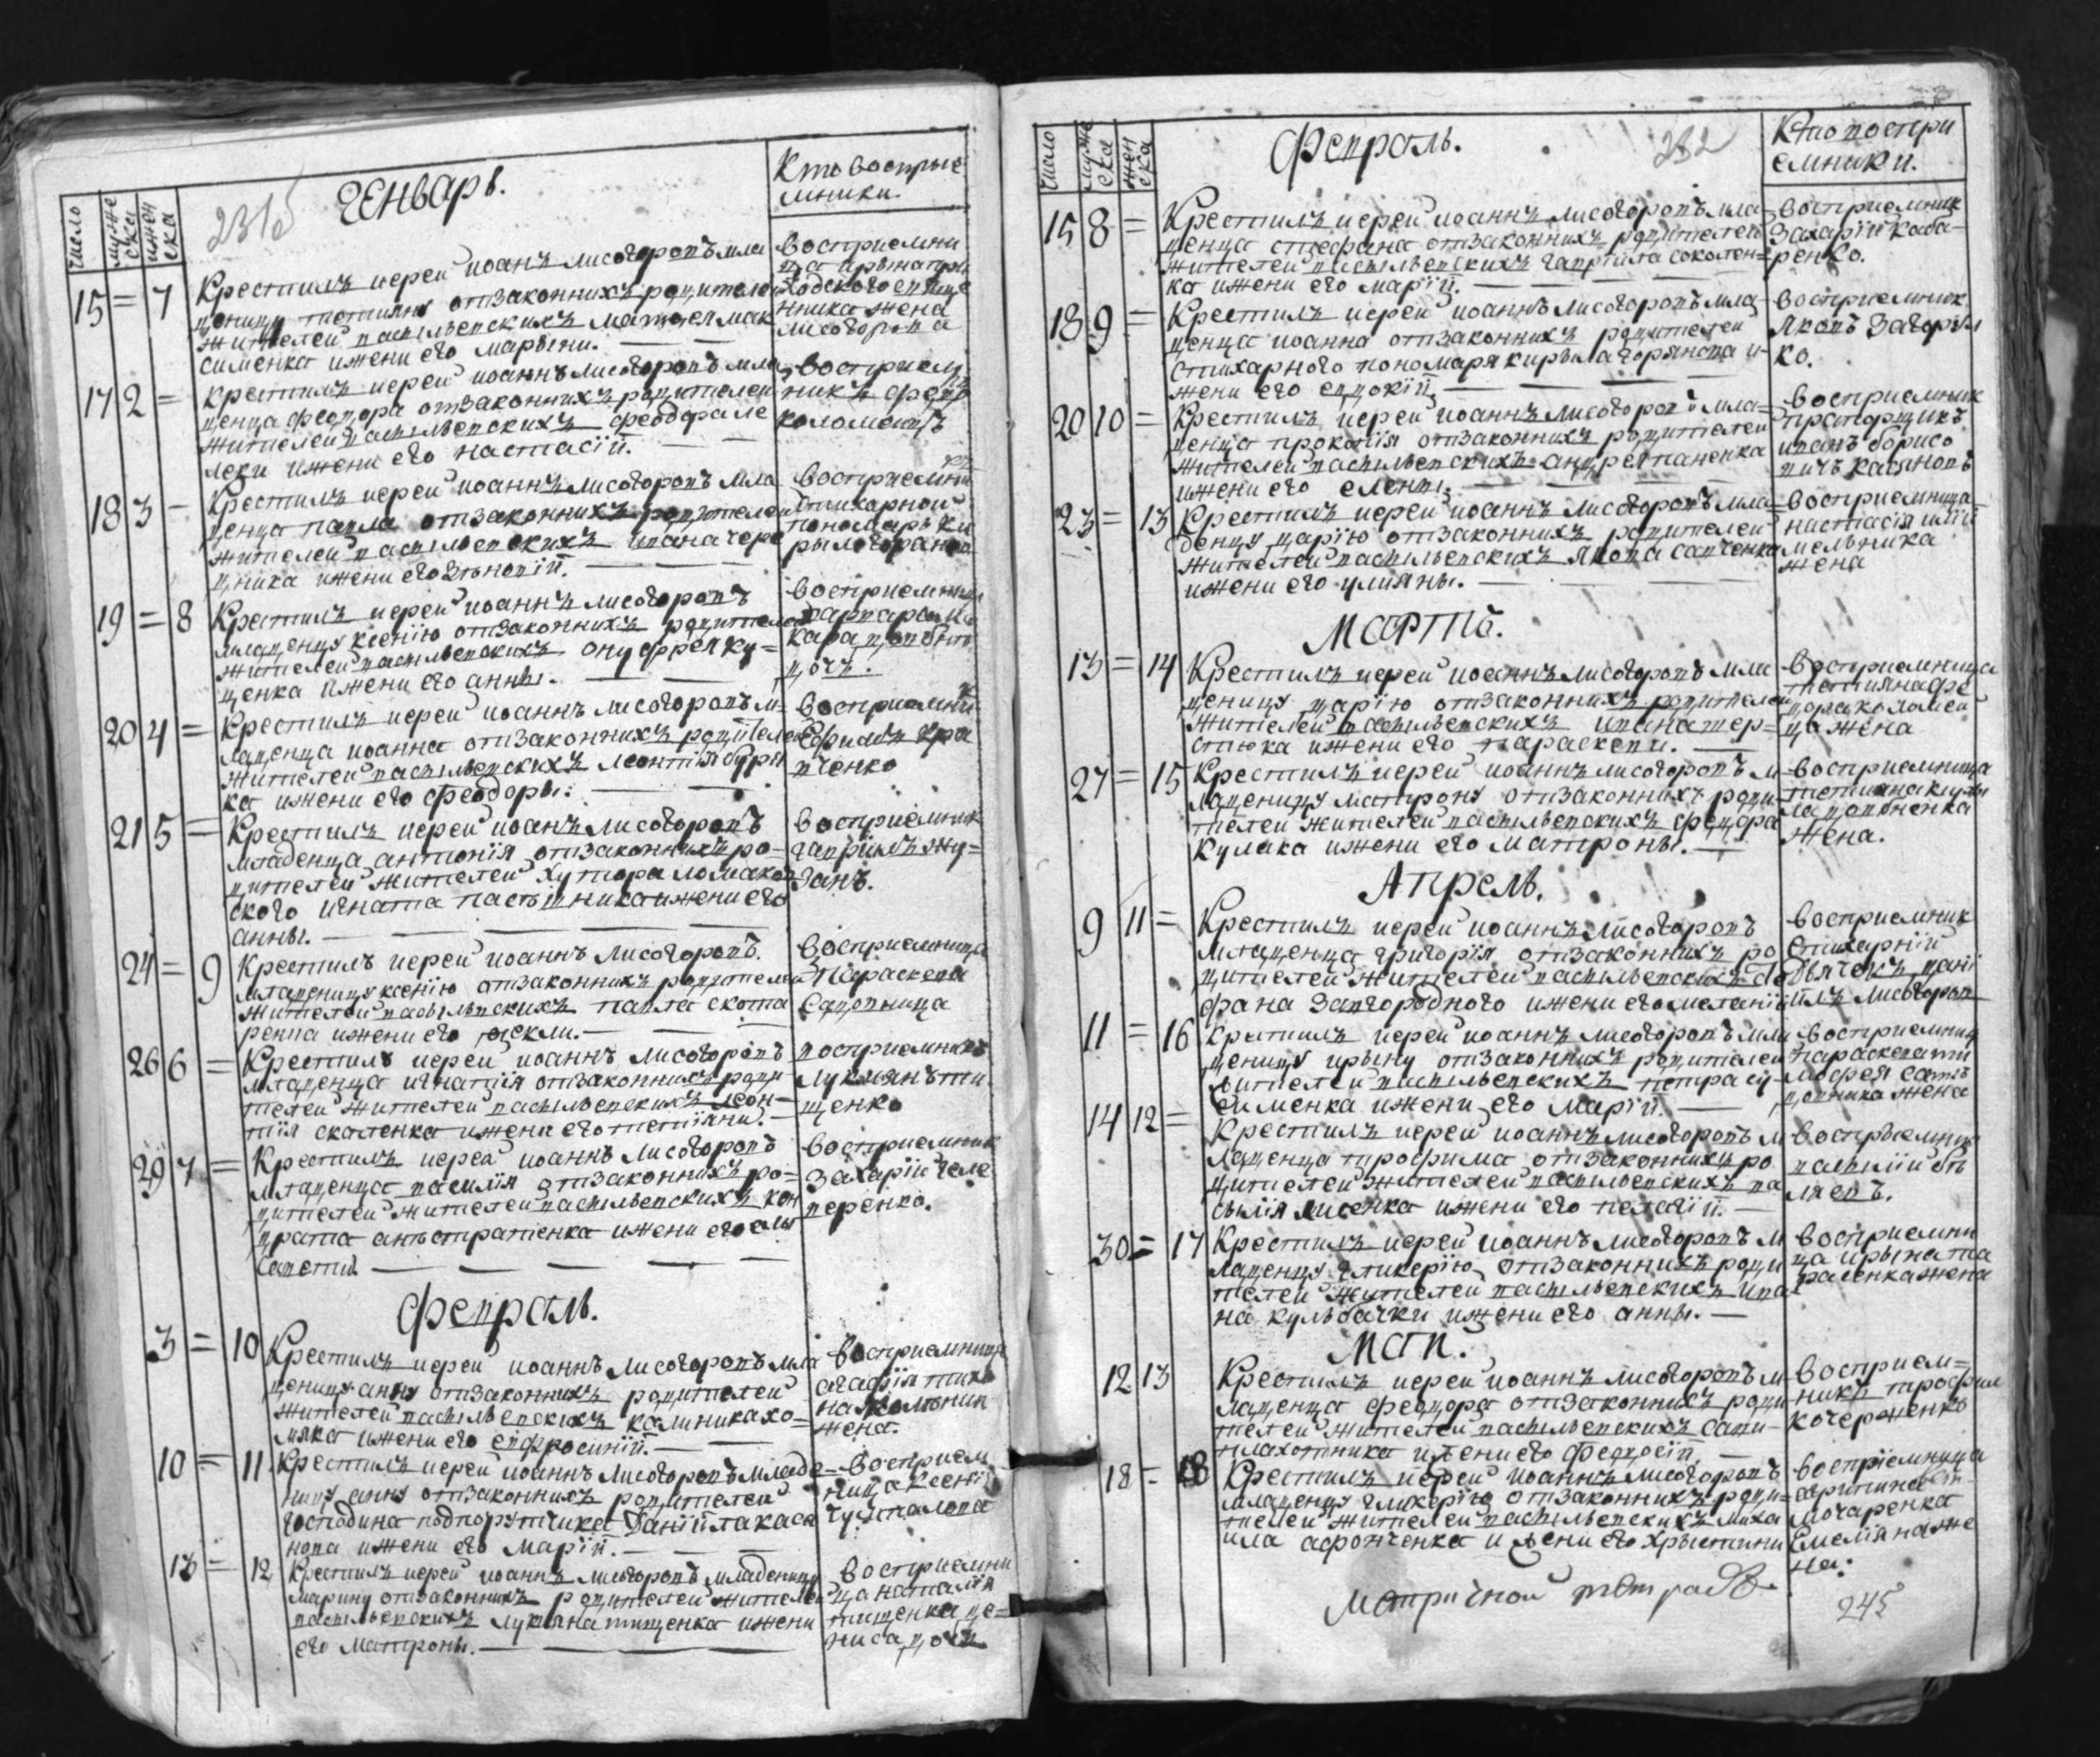 число
муже
ска
и жен
ска
2315
Генварь.
Кто восприе
мники.
15 = 7
Крестилъ иерей иоанъ лисогоровъ мла
деницу татияну от законнихъ родителей
жителей васильевскихъ матвея мак
сименка и жени его марвини.
Восприемни
ца ирина при
ходского священ
ника жена
лисогорова
17 2 =
Крестилъ иерей иоаннъ лисогоровъ мла
денца феодора от законнихъ родителей
жителей васильевскихъ феодора ле
леки и жени его настасіи.
восприем
никъ федо
коломеецъ
18 3 –
Крестилъ иерей иоаннъ лисогоровъ мла
денца павла от законнихъ родителей
жителей васильевскихъ ивана чере
дника и жени его зѣновіи.
восприемни
стихарной
пономарь ки
рыло горанов
19 = 8
Крестилъ иерей иоаннъ лисогоровъ
младеницу ксенію от законнихъ родителей
жителей васильевскихъ онуфрея ку=
ценка и жени его анны.
восприемница
варвара
дочь.
20 4 =
Крестилъ иерей иоаннъ лисогоровъ м=
ладенца иоанна от законнихъ родителей
жителей васильевскихъ леонтія буря
ка и жени его феодоры.
восприемни
Ефимъ кра
вченко
21 5 =
Крестилъ иерей иоанъ лисогоровъ
младенца антонія от законнихъ ро=
дителей жителей хутора ломаков
ского игната пастышника и жени его
анны.
восприемник
гавриилъ жу=
занъ.
24 = 9
Крестилъ иерей иоаннъ лисогоровъ.
младеницу ксенію от законнихъ родителей
жителей васильевскихъ павла скота
ренка и жени его феклы.
восприемница
Параскева
Садовница
26 6 =
Крестилъ иерей иоаннъ лисогоровъ
младенца игнатія от законнихъ роди
телей жителей васильевскихъ леон=
тія скаленка и жени его тетіяни.
восприемникъ
лукиянъ ти
щенко
29 7 =
Крестилъ иерей иоаннъ лисогоровъ
младенца василія от законнихъ ро=
дителей жителей васильевскихъ кон
драта анъстратенка и жени его ели
саветы.
восприемник
захарій челе
веренко.
Февраль.
3 = 10
Крестилъ иерей иоаннъ лисогоровъ мла
деницу анну от законнихъ родителей
жителей васильевскихъ калиника хо=
мяка и жени его евфросиніи.
восприемница
агафія
жена.
10 = 11
Крестилъ иерей иоаннъ лисогоровъ младе=
ницу анну от законнихъ родителей
господина подпорутчика Даніила каса
нова и жени его маріи.
восприем
ница ксені
чусталова
13 = 12
Крестилъ иерей иоаннъ лисогоровъ младеницу
марину от законнихъ родителей жителей
васильевскихъ лукіяна тищенка и жени
его матроны.
восприемни
ца наталія
тищенка де=
ниса дочь
число
муже
ска
жен
ска
Февраль.
232
Кто воспри
емники.
15 8 =
Крестилъ иерей иоаннъ лисогоровъ мла=
денца стефана от законнихъ родителей
жителей васильевскихъ гаврила соколен=
ка и жени его маріи.
восприемник
Захарій каба=
ренко.
18 9 =
Крестилъ иерей иоаннъ лисогоровъ мла=
денца иоанна от законнихъ родителей
стихарного пономаря кирыла горянова и
жени его евдокіи.
восприемник
Яковъ Загорул
ко.
20 10 =
Крестилъ иерей иоаннъ лисогоровъ мла=
денца прокопія от законнихъ родителей
жителей васильевскихъ андрея паненка
и жени его елены.
восприемник
прапорщикъ
иванъ борисо
вичъ касяновъ
23 = 13
Крестилъ иерей иоаннъ лисогоровъ мла=
деницу дарію от законнихъ родителей
жителей васильевскихъ якова савченка
и жени его улияны.
восприемница
настасія иліи
мелника
жена
Мартъ.
13 = 14
Крестилъ иерей иоаннъ лисогоровъ мла
деницу дарію от законнихъ родителей
жителей васильевскихъ ивана шер=
стюка и жени его параскевы.
восприемница
татияна фе
дора коломей
ца жена
27 = 15
Крестилъ иерей иоаннъ лисогоровъ м=
ладеницу матрону от законнихъ роди
телей жителей васильевскихъ федора
кулака и жени его матроны.
восприемница
татияна киры
ла доненка
жена.
Апрель.
9 11 =
Крестилъ иерей иоаннъ лисогоровъ
младенца григорія от законнихъ ро
дителей жителей васильевскихъ сте
фана Загородного и жени его меланіи
восприемник
стихарній
дьячокъ дані
илъ лисогоров
11 = 16
Крестилъ иерей иоаннъ лисогоровъ мла
деницу ирыну от законнихъ родителей
жителей васильевскихъ петра су=
сименка и жени его маріи.
восприемниц
параскева ти
мофея
жена
14 12 =
Крестилъ иерей иоаннъ лисогоровъ м
ладенца трофима от законнихъ ро
дителей жителей васильевскихъ ва
сылія лисенка и жени его пелагіи.
восприемник
василій бѣ
ляевъ.
30 = 17
Крестилъ иерей иоаннъ лисогоровъ м
ладеницу гликерію от законнихъ роди
телей жителей васильевскихъ ива
на кульбачки и жени его анны.
восприемни
ца ирына та
расенка жена
Маи.
12 13
Крестилъ иерей иоаннъ лисогоровъ м
ладенца феодора от законнихъ роди
телей жителей васильевскихъ сави
плахотника и жени его феодосіи.
восприем=
никъ трофим
кочерженко
18 = 18
Крестилъ иерей иоаннъ лисогоровъ
младеницу гликерію от законнихъ роди=
телей жителей васильевскихъ миха
ила афонченка и жени его хрыстини
восприемница
мочаренка
Емеліяна же
на:
245